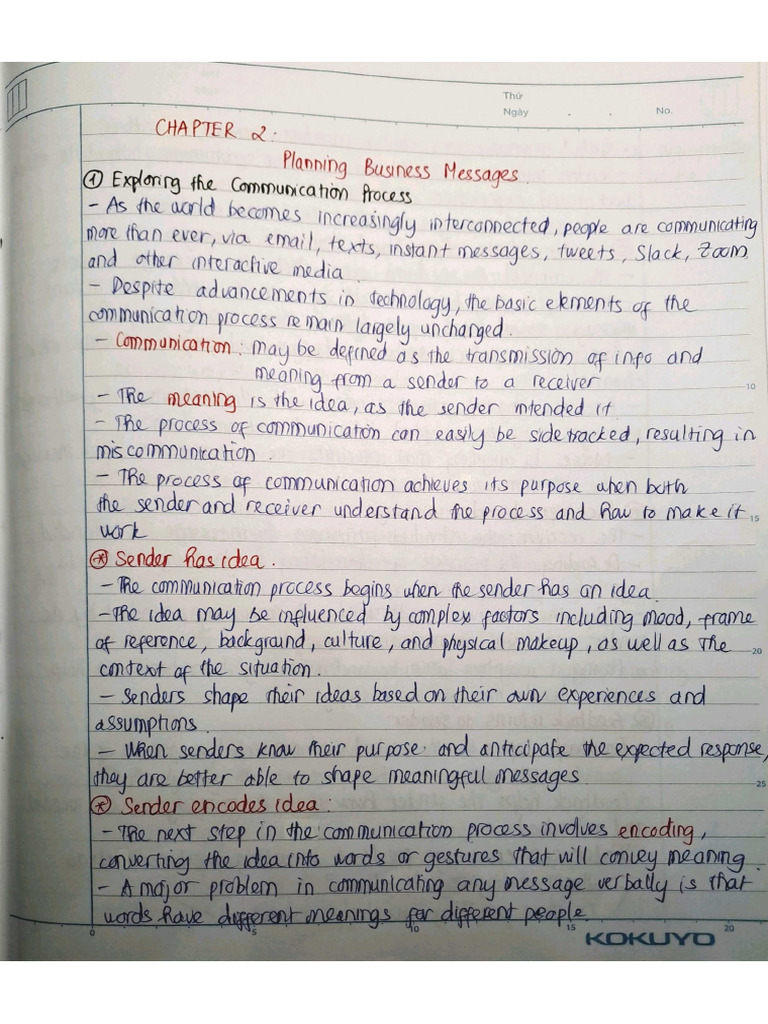 Thứ
Ngày . . No.
CHAPTER 2:
Planning Business Messages.
① Exploring the Communication Process
- As the world becomes increasingly interconnected, people are communicating
more than ever, via email, texts, instant messages, tweets, Slack, Zoom
and other interactive media.
- Despite advancements in technology, the basic elements of the
communication process remain largely uncharged.
- Communication: may be defined as the transmission of info and
meaning from a sender to a receiver
10
- The meaning is the idea, as the sender intended it.
- The process of communication can easily be sidetracked, resulting in
miscommunication.
- The process of communication achieves its purpose when both
the sender and receiver understand the process and how to make it
15
work
⊛ Sender has idea.
- The communication process begins when the sender has an idea.
- The idea may be influenced by complex factors including mood, frame
of reference, background, culture, and physical makeup, as well as the
20
context of the situation.
- Senders shape their ideas based on their own experiences and
assumptions.
- When senders know their purpose and anticipate the expected response,
they are better able to shape meaningful messages
25
⊛ Sender encodes idea:
- The next step in the communication process involves encoding,
converting the idea into words or gestures that will convey meaning.
- A major problem in communicating any message verbally is that
words have different meanings for different people.
0 5 10 15 20
KOKUYO